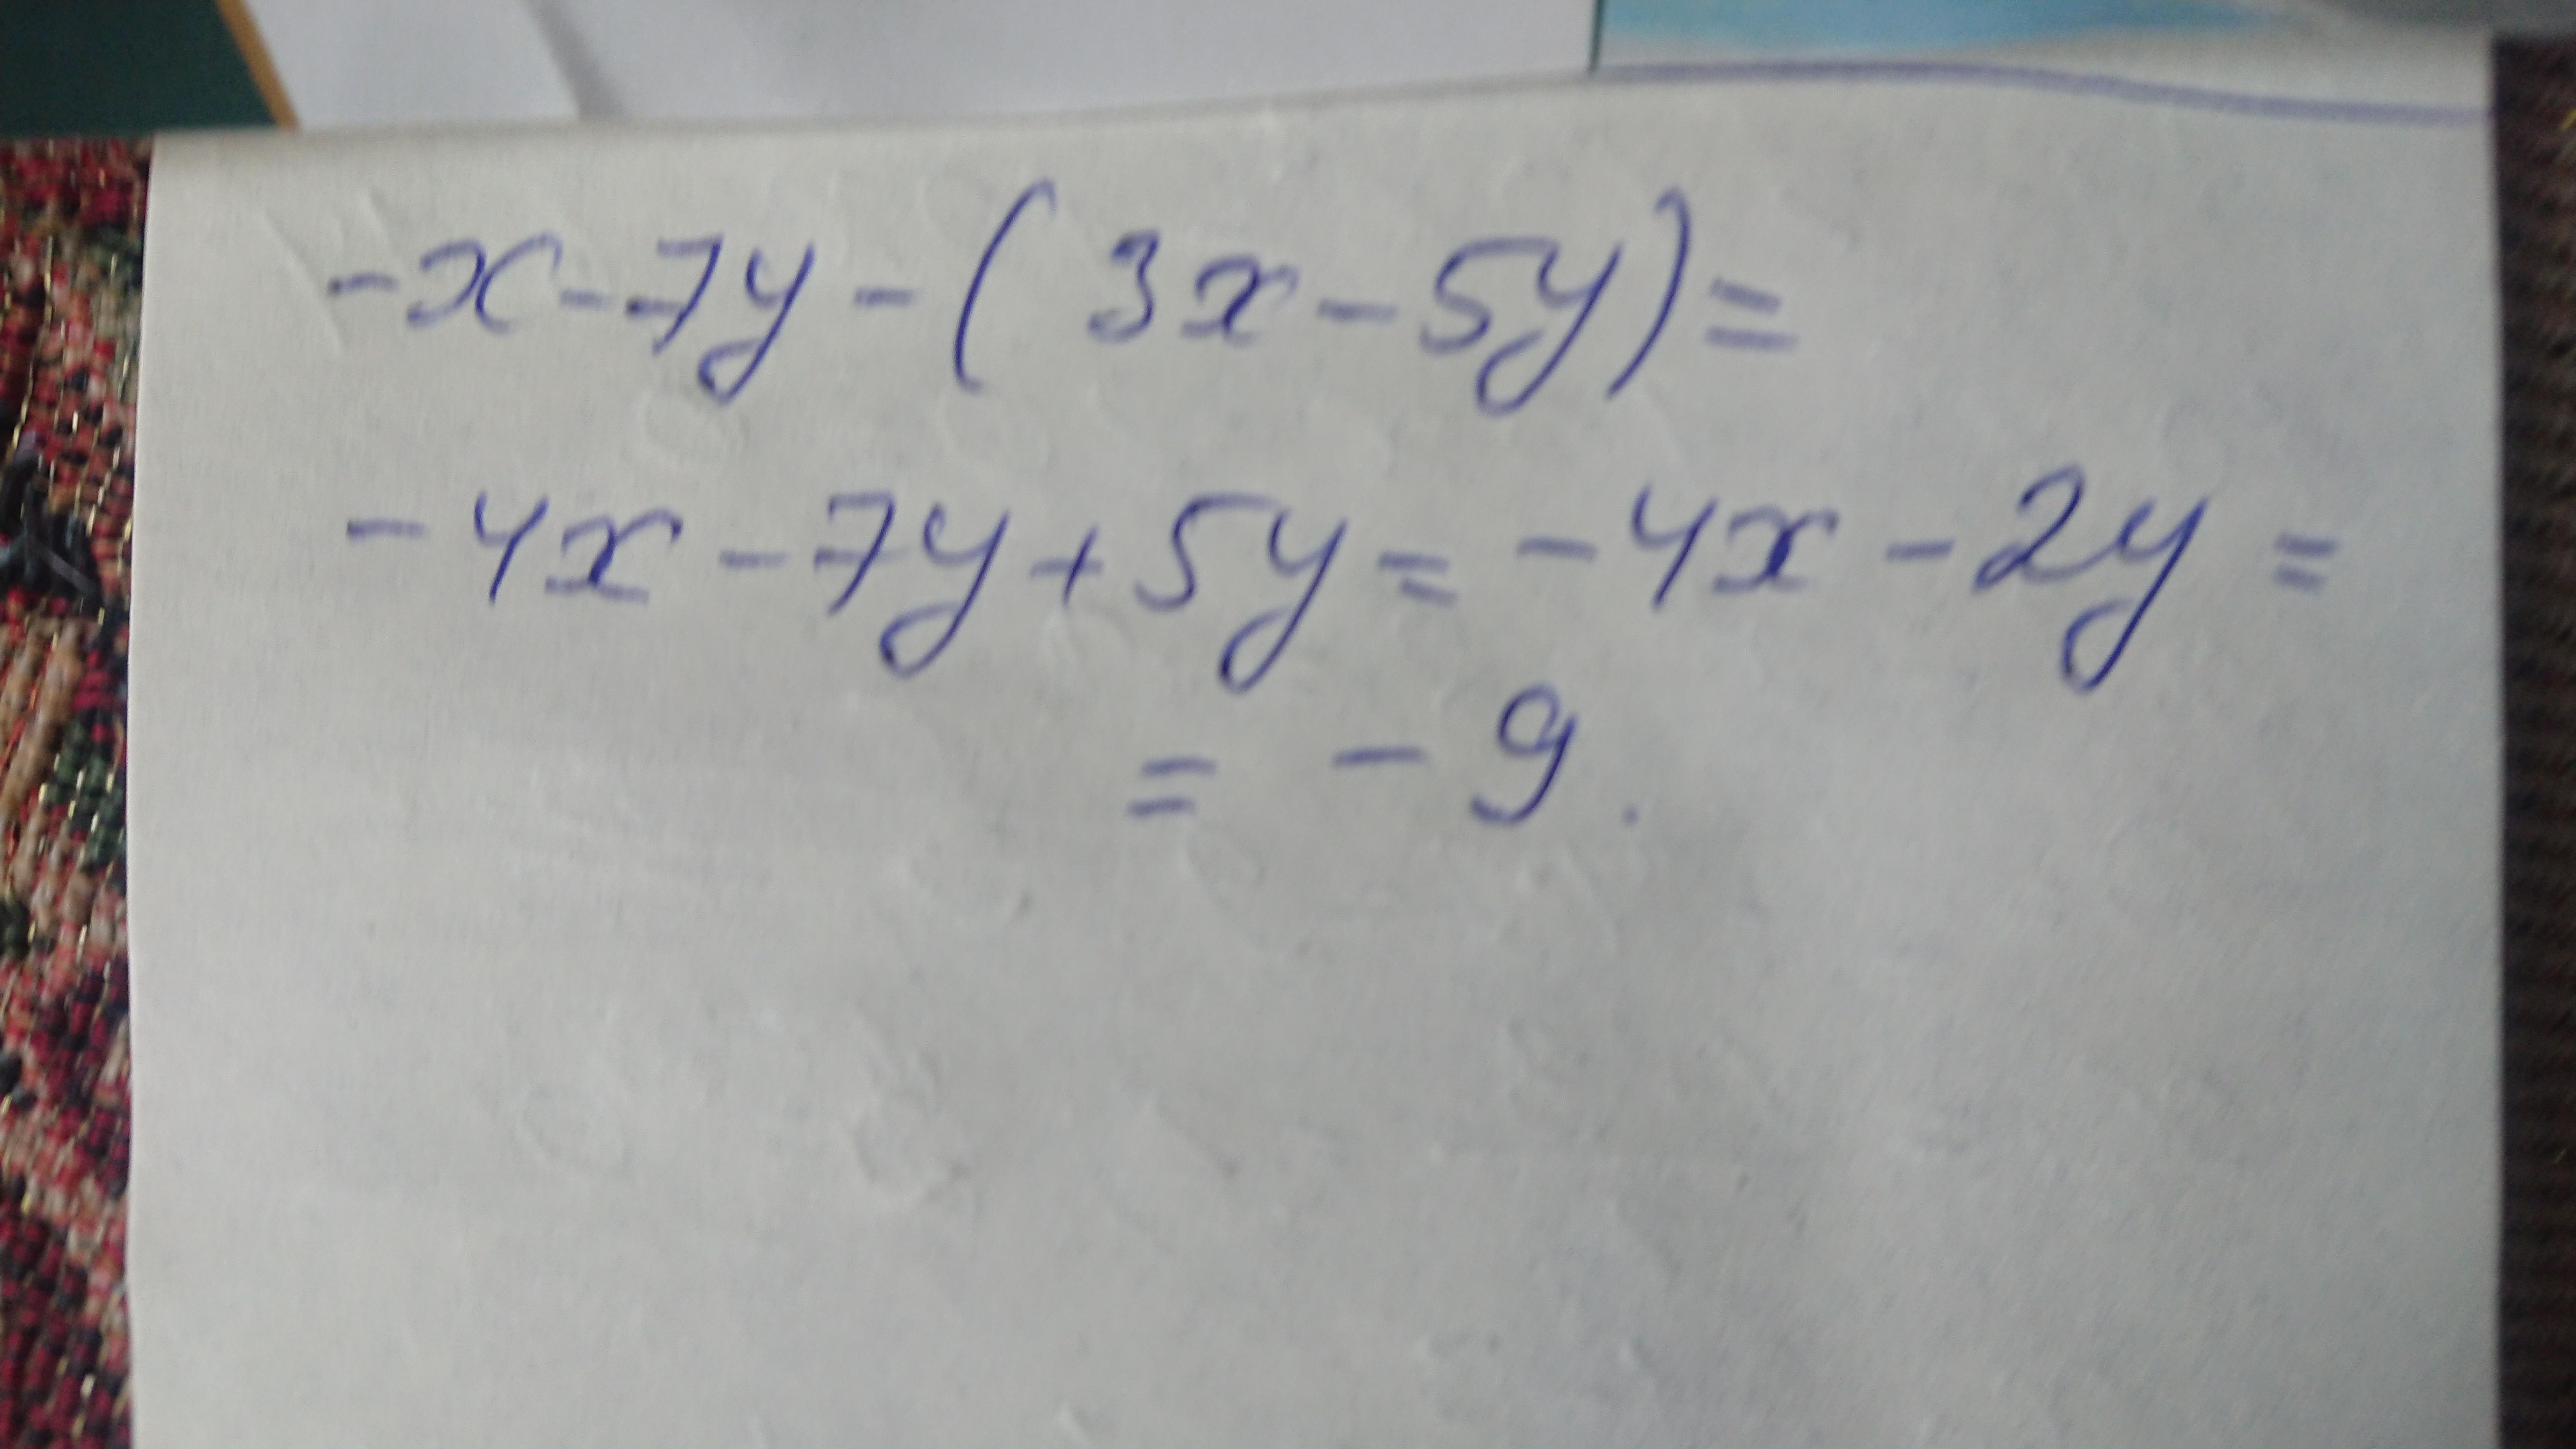 -x-7y-(3x-5y)=
-4x-7y+5y=-4x-2y=
= -9.